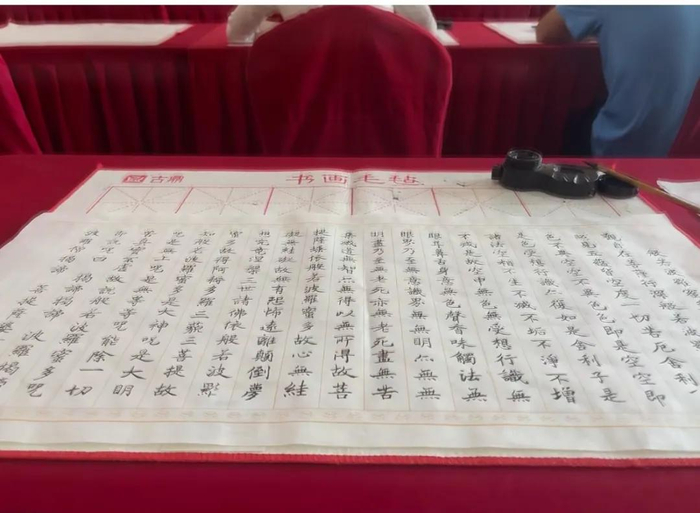 古鼎
书画毛毡
一切苦厄舍利
色即是空空即
是色受想行識亦復如是舍利子是
諸法空相不生不滅不垢不淨不增
不減是故空中無色無受想行識無
眼耳鼻舌身意無色聲香味觸法無
眼界乃至無意識界無無明亦無無
明盡乃至無老死亦無老死盡無苦
集滅道無智亦無得以無所得故菩
提薩埵依般若波羅蜜多故心無罣
礙無罣礙故無有恐怖遠離顛倒夢
想究竟涅槃三世諸佛依般若波羅
蜜多故得阿耨多羅三藐三菩提故
知般若波羅蜜多是大神呪是大明
呪是無上呪是無等等呪能除一切
苦真實不虛故說般若波羅蜜多呪
即說呪曰 揭諦揭諦 波羅揭諦
波羅僧揭諦 菩提薩